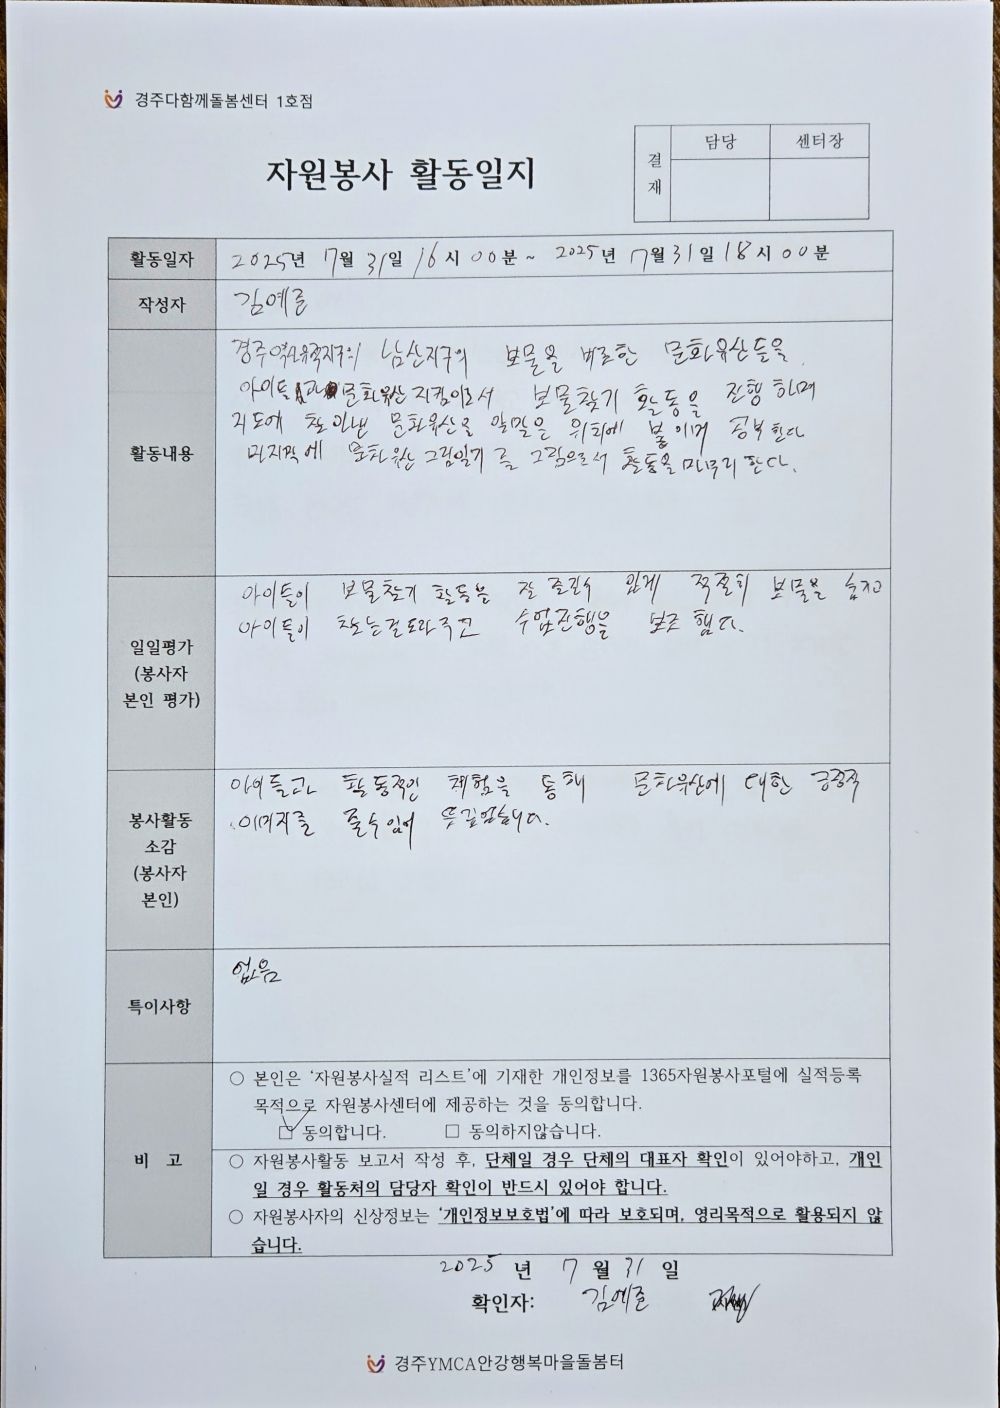 경주다함께돌봄센터 1호점
자원봉사 활동일지
결재
담당
센터장
활동일자
2025년 7월 31일 16시 00분 ~ 2025년 7월 31일 18시 00분
작성자
김예준
활동내용
경주역사유적지구의 남산지구의 보물을 비롯한 문화유산들을
아이들과 문화유산 지킴이로서 보물찾기 활동을 진행하며
지도에 찾아낸 문화유산을 알맞은 위치에 붙이며 공부한다
마지막에 문화유산 그림일기를 그림으로서 활동을 마무리한다.
일일평가
(봉사자
본인 평가)
아이들이 보물찾기 활동을 잘 즐길수 있게 적절히 보물을 숨기고
아이들이 찾는걸 도와주고 수업진행을 보조했다.
봉사활동
소감
(봉사자
본인)
아이들과 활동적인 체험을 통해 문화유산에 대한 긍정적
이미지를 줄수있어 뜻깊었습니다.
특이사항
없음
비 고
○ 본인은 ‘자원봉사실적 리스트’에 기재한 개인정보를 1365자원봉사포털에 실적등록
목적으로 자원봉사센터에 제공하는 것을 동의합니다.
□ 동의합니다. □ 동의하지않습니다.
○ 자원봉사활동 보고서 작성 후, 단체일 경우 단체의 대표자 확인이 있어야하고, 개인
일 경우 활동처의 담당자 확인이 반드시 있어야 합니다.
○ 자원봉사자의 신상정보는 ‘개인정보보호법’에 따라 보호되며, 영리목적으로 활용되지 않
습니다.
2025 년 7 월 31 일
확인자: 김예준
경주YMCA안강행복마을돌봄터